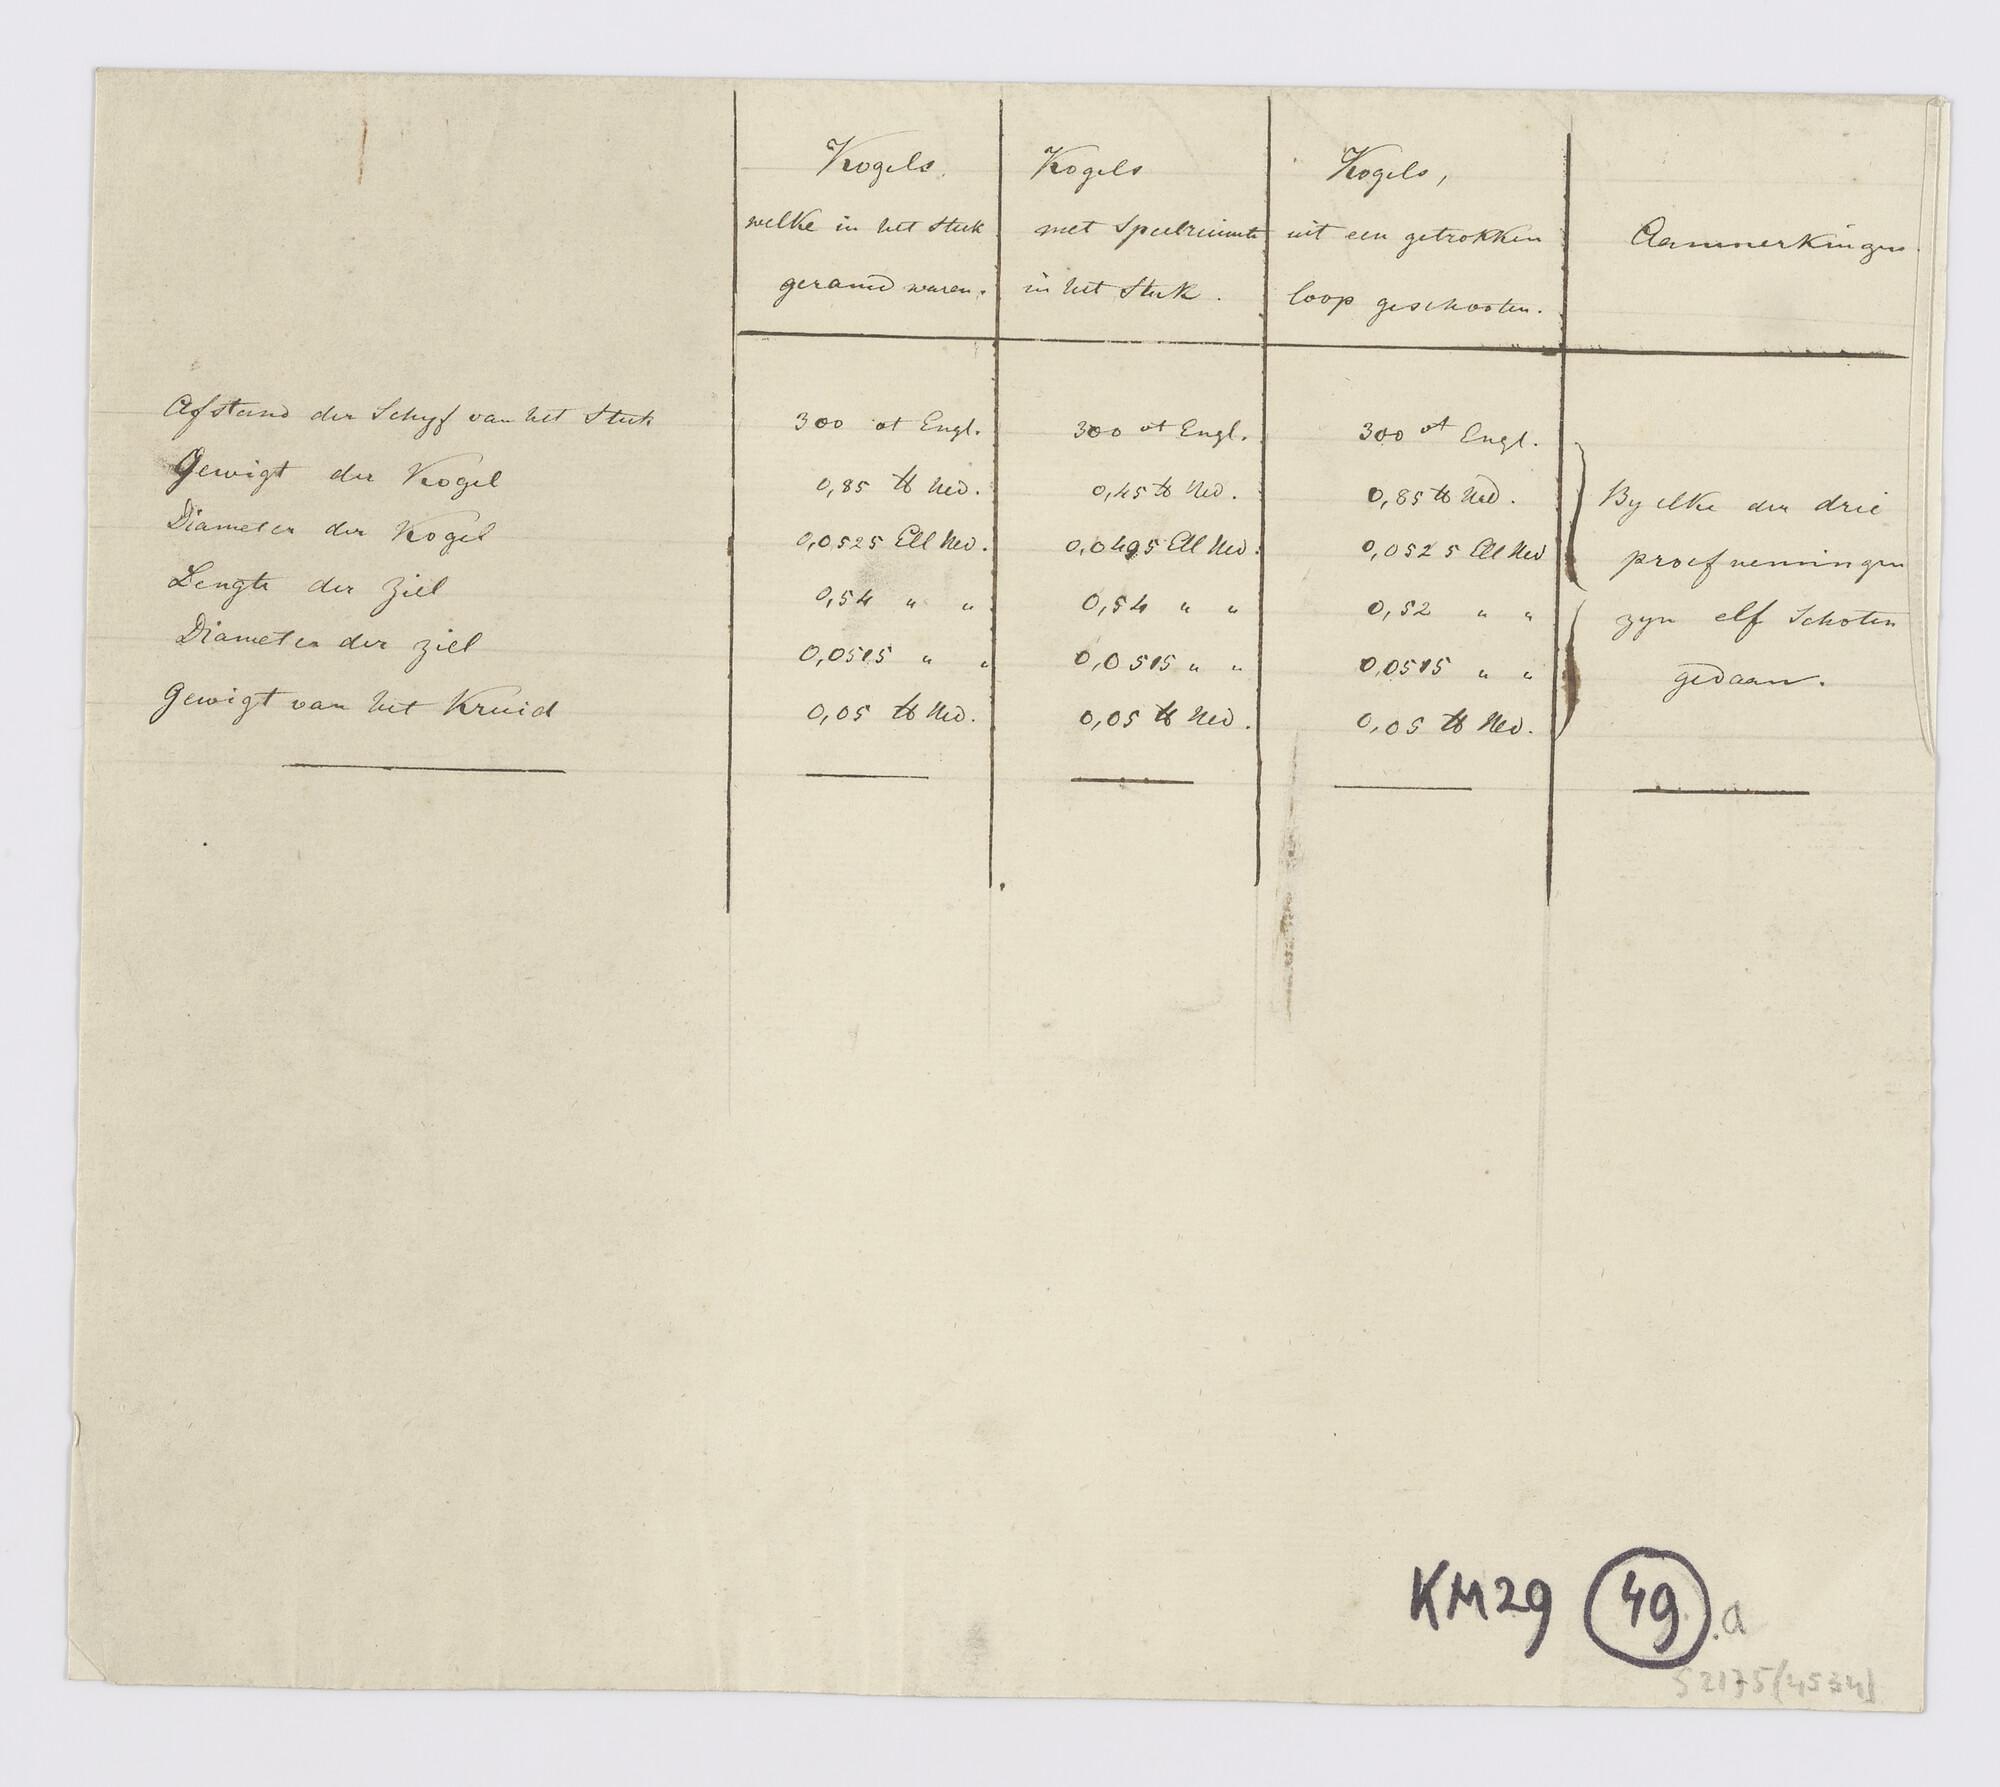 Kogels
welke in het Stuk
geramd waren.
Kogels
met Speelruimte
in het Stuk.
Kogels,
uit een getrokken
loop geschooten.
Aanmerkingen
Afstand der Schyf van het Stuk 300 vt Engl. 300 vt Engl. 300 vt Engl.
Gewigt der Kogel 0,85 ℔ Ned. 0,45 ℔ Ned. 0,85 ℔ Ned.
Diameter der Kogel 0,0525 Ell Ned. 0,0495 Ell Ned. 0,0525 Ell Ned
Lengte der Ziel 0,54 " " 0,54 " " 0,52 " "
Diameter der Ziel 0,0515 " " 0,0515 " " 0,0515 " "
Gewigt van het Kruid 0,05 ℔ Ned. 0,05 ℔ Ned. 0,05 ℔ Ned.
By elke der drie
proefnemingen
zyn elf Schoten
gedaan.
KM29 49.a
S2175(4534)